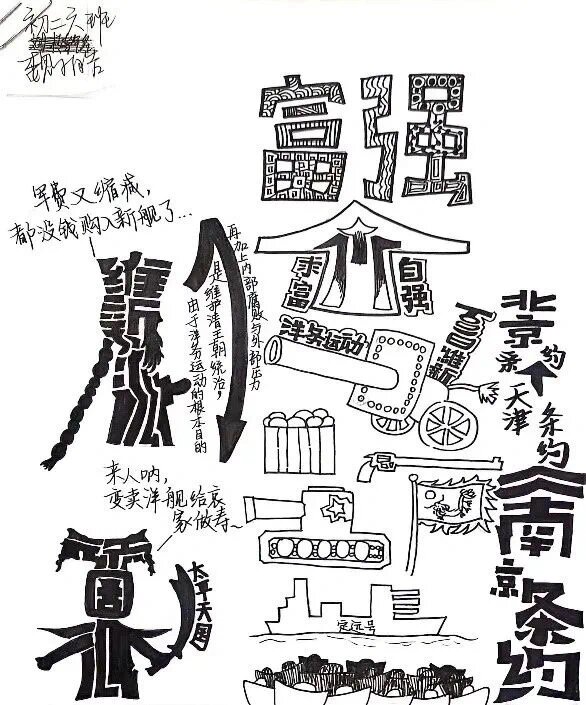 初二六班
富强
军费又缩减，
都没钱购入新舰了...
维新派
由于洋务运动的根本目的
是维护清王朝统治，
再加上内部腐败与外部压力
求富
自强
洋务运动
百日维新
北京
条约
天津
条约
《南京条约
来人呐，
变卖洋舰给哀
家做寿~
太平天国
定远号